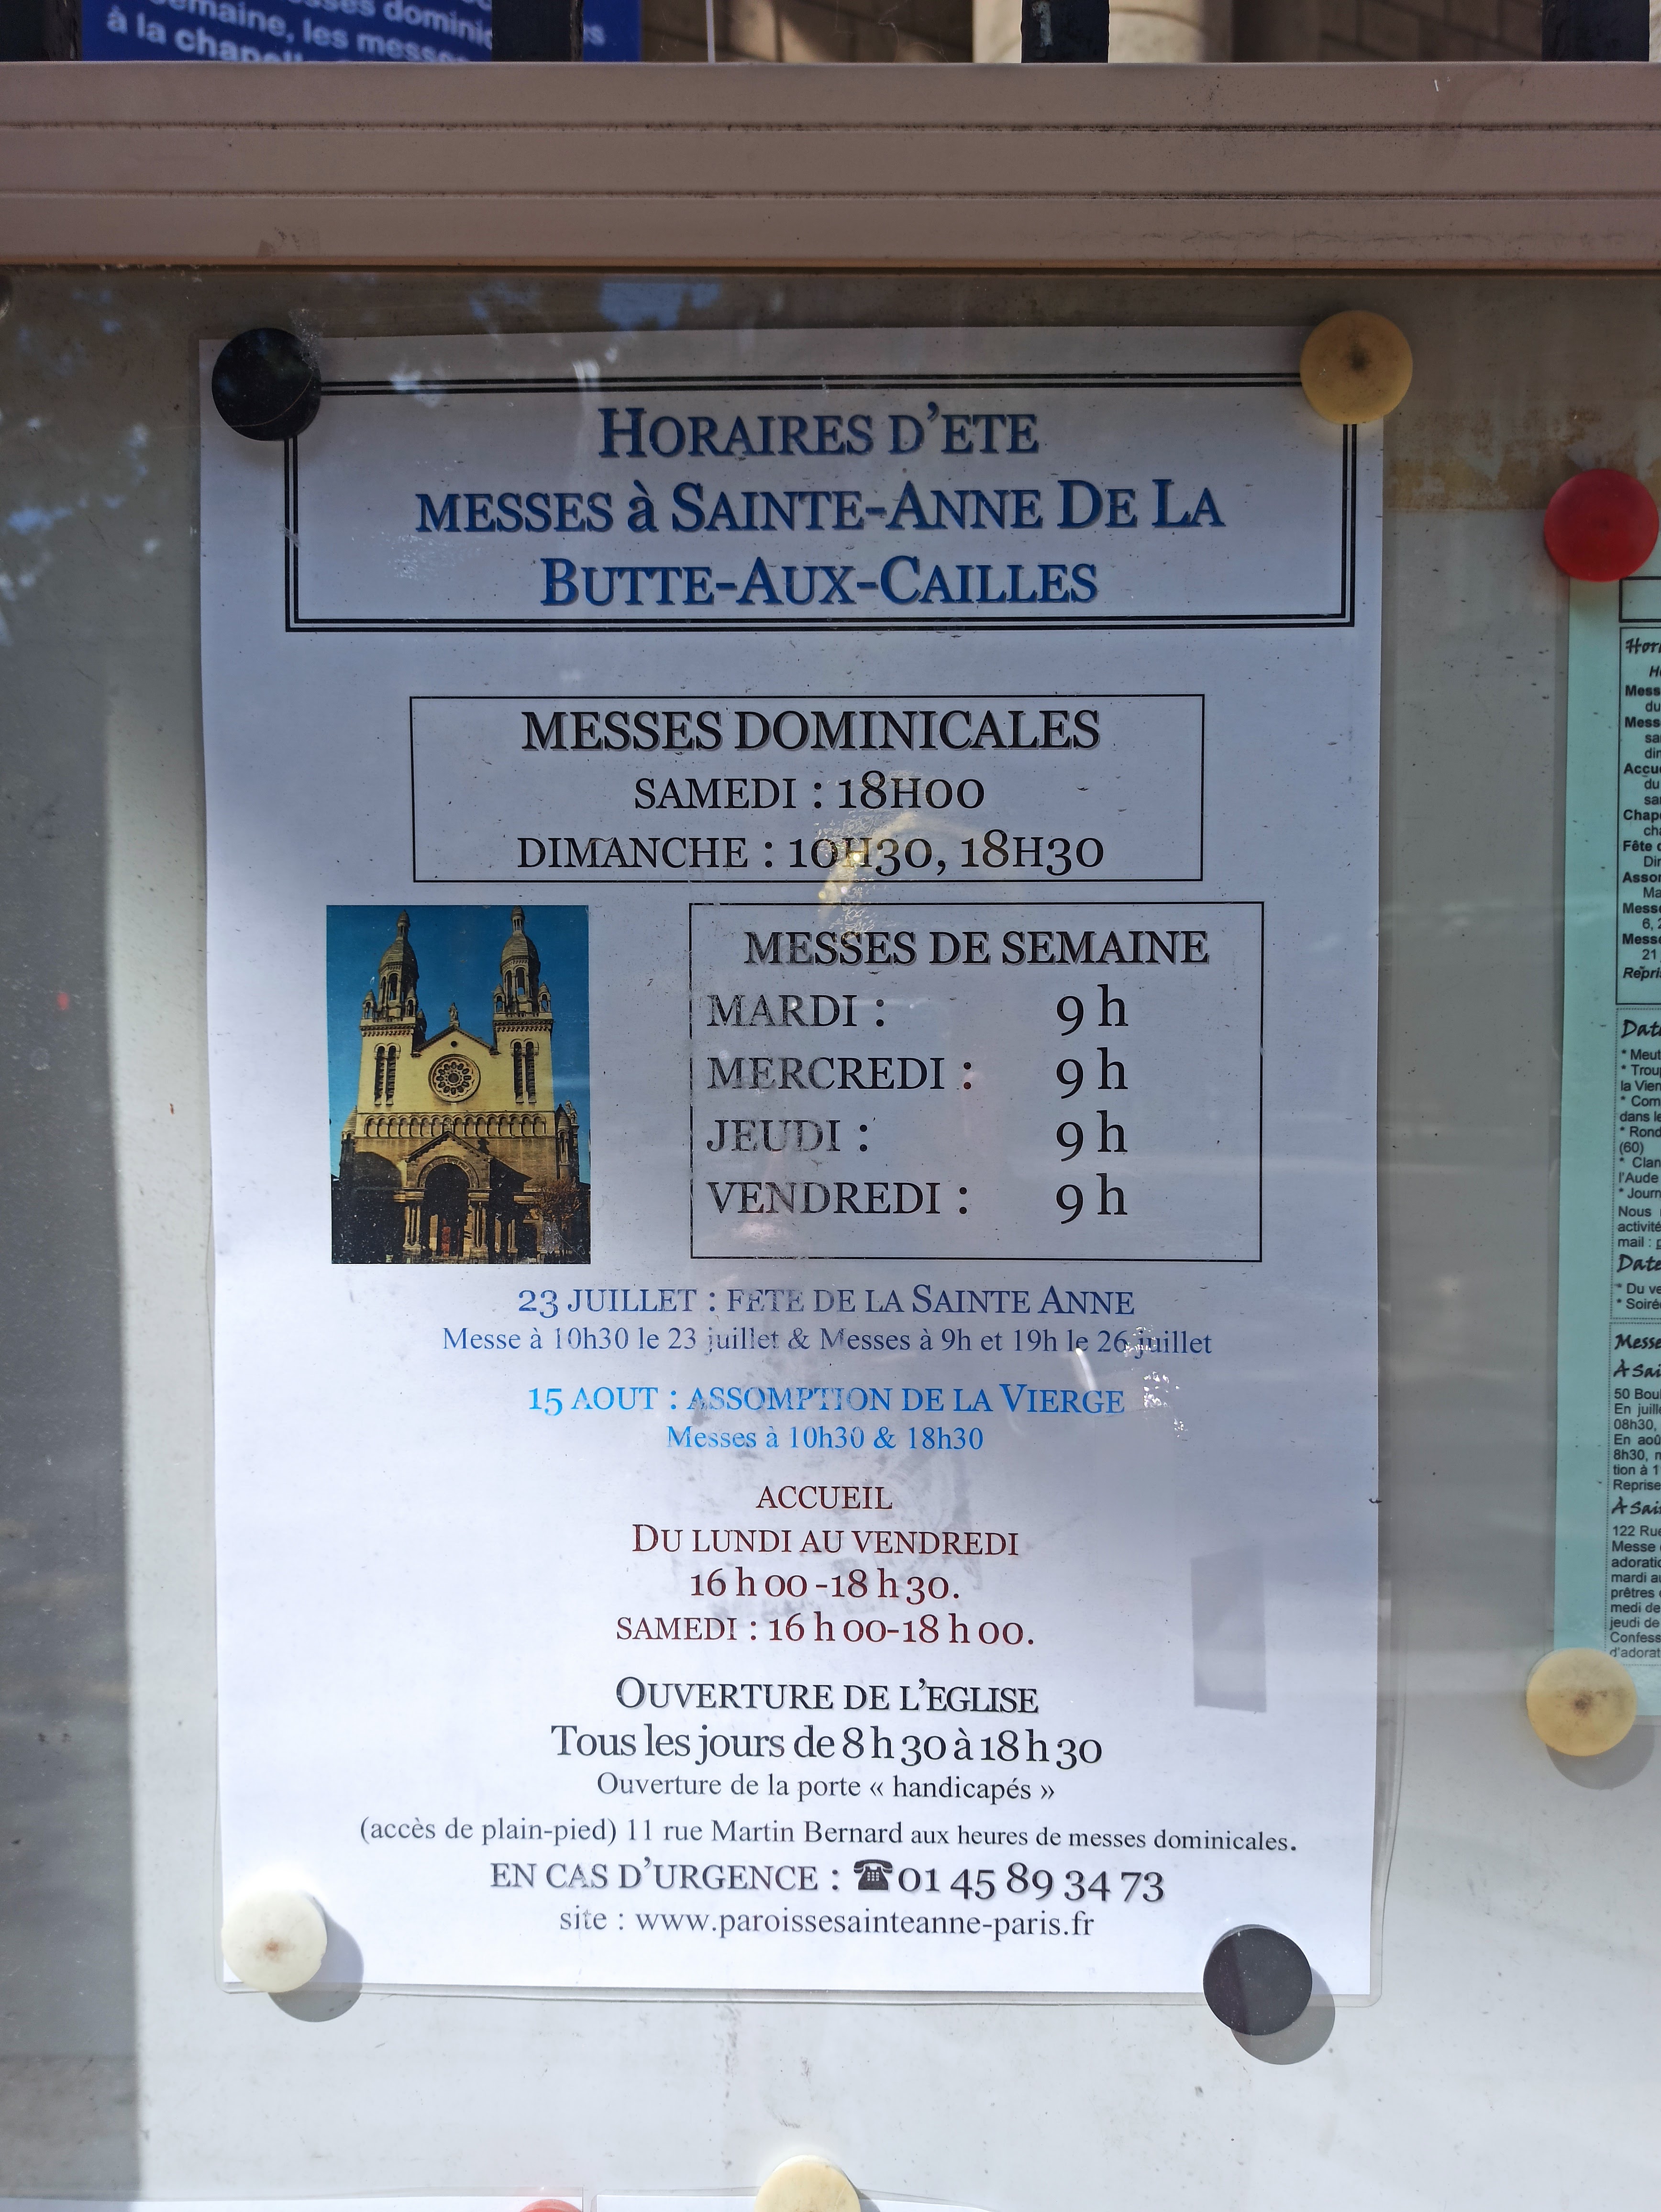 dominic
emaine, les messes
à la chapelle
HORAIRES D'ETE
MESSES à SAINTE-ANNE DE LA
BUTTE-AUX-CAILLES
MESSES DOMINICALES
SAMEDI : 18H00
DIMANCHE : 10H30, 18H30
MESSES DE SEMAINE
MARDI : 9 h
MERCREDI : 9 h
JEUDI : 9 h
VENDREDI : 9 h
23 JUILLET : FETE DE LA SAINTE ANNE
Messe à 10h30 le 23 juillet & Messes à 9h et 19h le 26 juillet
15 AOUT : ASSOMPTION DE LA VIERGE
Messes à 10h30 & 18h30
ACCUEIL
DU LUNDI AU VENDREDI
16 h 00 -18 h 30.
SAMEDI : 16 h 00-18 h 00.
OUVERTURE DE L'EGLISE
Tous les jours de 8 h 30 à 18 h 30
Ouverture de la porte « handicapés »
(accès de plain-pied) 11 rue Martin Bernard aux heures de messes dominicales.
EN CAS D'URGENCE : ☎01 45 89 34 73
site : www.paroissesainteanne-paris.fr
Hor
Mess
du
Mess
sa
dir
Accu
du
sa
Chap
cha
Fête
Dir
Asso
Ma
Mess
6, 2
Mess
21
Repri
Date
* Meut
* Trou
la Vien
* Com
dans le
* Rond
(60)
* Clan
l'Aude
* Journ
Nous
activité
mail : p
Date
* Du ve
* Soiré
Messe
À Sai
50 Boul
En juill
08h30,
En aoû
8h30, m
tion à 1
Reprise
À Sai
122 Rue
Messe
adoratio
mardi au
prêtres
medi de
jeudi de
Confess
d'adorat